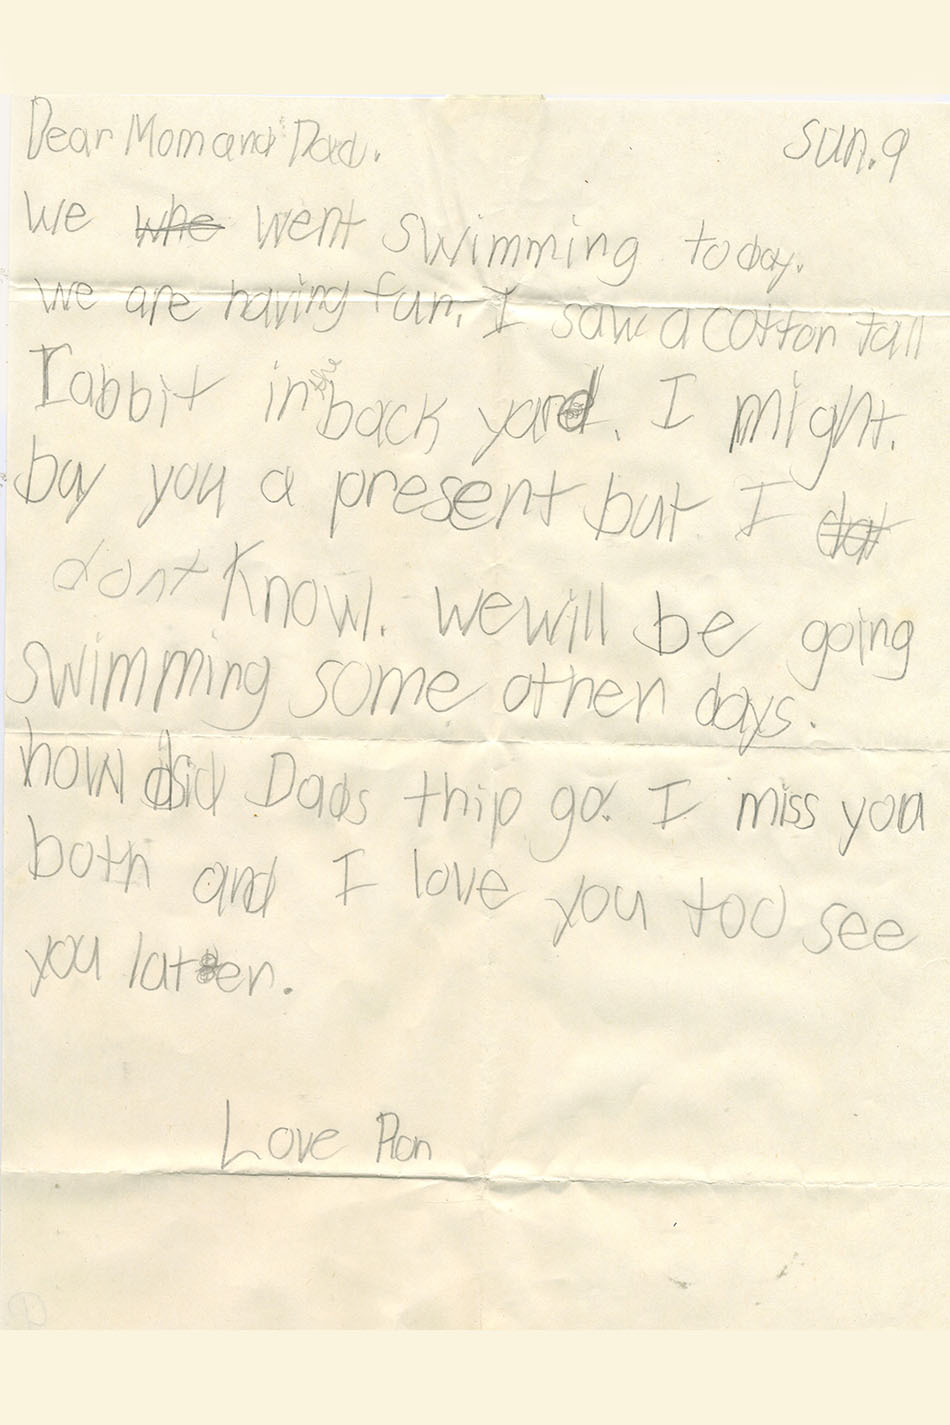 Dear Mom and Dad.
sun. 9
we whe went swimming today.
we are having fun. I saw a cotton tall
rabbit in the back yard. I might.
by you a present but I dot
dont know. we will be going
swimming some other days.
how did Dads thip go. I miss you
both and I love you too see
you later.
Love Ron